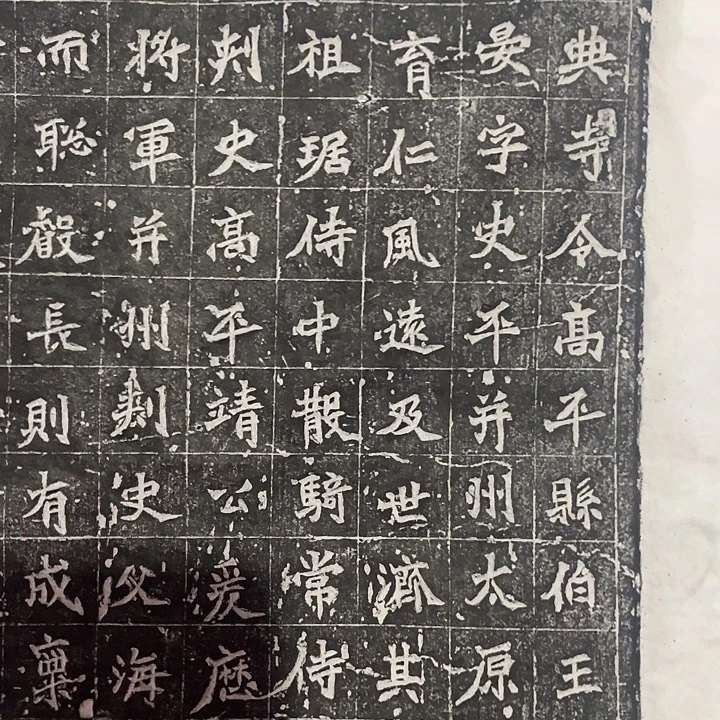 典寺令高平縣伯王
晏字史平并州太原
育仁風遠及世濟其
祖琚侍中散騎常侍
刾史高平靖公歷
將軍并州刾史父海
而聡長則有成稟